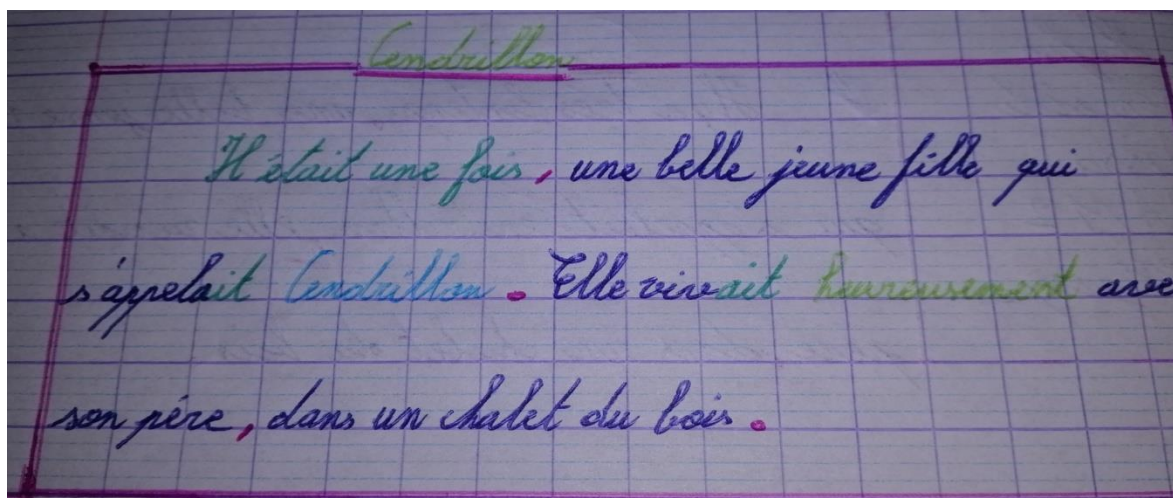 Cendrillon
Il était une fois, une belle jeune fille qui
s'appelait Cendrillon. Elle vivait heureusement avec
son père, dans un chalet du bois.